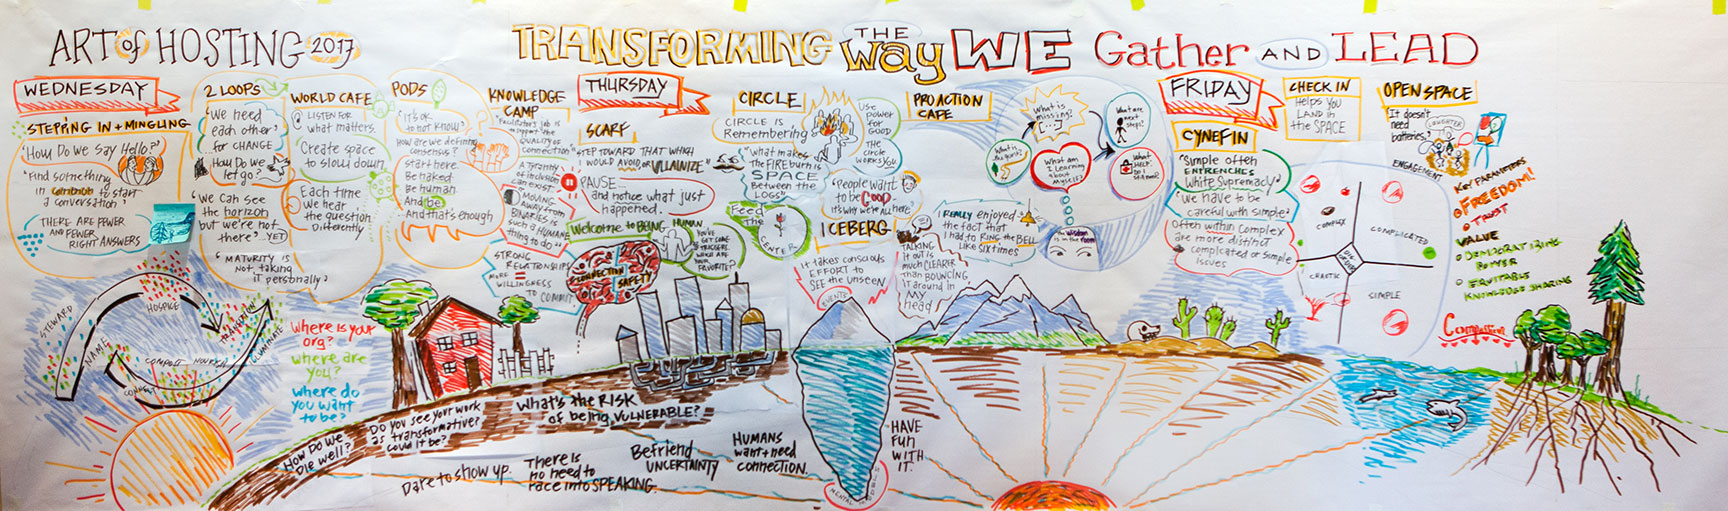 ART of HOSTING 2017
TRANSFORMING THE Way WE Gather AND LEAD
WEDNESDAY
STEPPING IN + MINGLING
"How Do We Say Hello?"
"Find something
in common to start
a conversation"
THERE ARE FEWER
AND FEWER
RIGHT ANSWERS
2 LOOPS
"We need
each other"
for CHANGE
How Do we
let go?
"We can see
the horizon
but we're not
there"...YET)
"MATURITY is
Not taking
it personally"
WORLD CAFE
LISTEN FOR
what matters.
Create space
to slow down.
Each time
We hear
the question
Differently
PODS
"it's ok
to not know"
How are we defining
consensus?
start here.
Be naked.
Be human.
And be
And that's enough
KNOWLEDGE
CAMP
"Facilitator's job is
to support the
QUALITY of
CONNECTION"
A TRINITY
of inclusion
can exist
MOVING
AWAY from
BINARIES is
such a HUMANE
thing to do"
STRONG
RELATIONSHIPS
MORE = WILLINGNESS
TO COMMIT
THURSDAY
SCARF
STEP TOWARD THAT WHICH
I WOULD AVOID or VILLAINIZE"
PAUSE...
and notice what just
happened.
Welcome to BEING HUMAN
CONNECTION
SAFETY
YOU'VE
GOT SOME
TRIGGERS
WHICH ARE
YOUR
FAVORITE?
CIRCLE
CIRCLE is
Remembering
"what makes
the FIRE burn is
SPACE
Between the
LOGS"
Feed
The
CENTER
Use
power for
GOOD
THE
Circle
WORKS YOU
"People want
to be GOOD
it's why we're all here"
ICEBERG
It takes conscious
EFFORT to
SEE the unseen
EVENTS
PRO ACTION
CAFE
TALKING
it out is
much CLEARER
Than BOUNCING
it around in
MY
head
I REALLY enjoyed
the fact that
I had to RING the BELL
Like six times
What is
missing?
[...]
What is
the quest?
What am
I learning
about
Myself?
What are
next
steps?
What
HELP
Do I
still need?
The wisdom
is in the room
FRIDAY
CYNEFIN
"Simple often
ENTRENCHES
White Supremacy"
"We have to be
careful with simple"
Often within Complex
are more distinct
complicated or simple
issues
CHECK IN
Helps you
LAND in
the SPACE
OPEN SPACE
It doesn't
need
batteries."
LAUGHTER
ENGAGEMENT
COMPLEX
COMPLICATED
DISORDER
CHAOTIC
SIMPLE
Key PARAMETERS
FREEDOM!
TRUST
VALUE
DEMOCRATIZING
POWER
EQUITABLE
KNOWLEDGE SHARING
Compassion
STEWARD
HOSPICE
TRANSITION
ILLUMINATE
NAME
CONNECT
COMPOST
NOURISH
Where is your
org?
where are
you?
where do
you want
to be?
How Do we
Die well?
Do you see your work
as transformative?
could it be?
What's the RISK
of being VULNERABLE?
Dare to show up.
There is
no need to
race into SPEAKING.
Befriend
UNCERTAINTY
HUMANS
want + need
connection.
HAVE
FUN
WITH
IT.
MENTAL MODELS